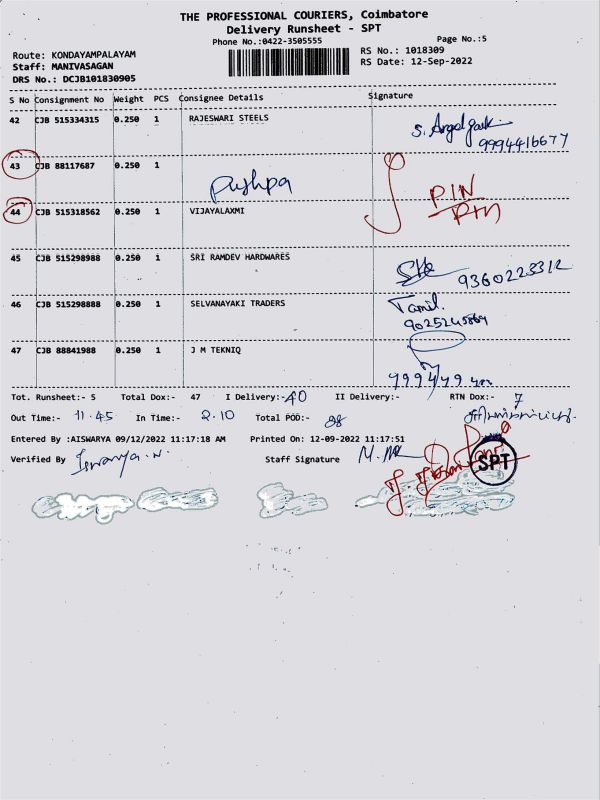 THE PROFESSIONAL COURIERS, Coimbatore
Delivery Runsheet - SPT
Phone No.:0422-3505555
Page No.:5
Route: KONDAYAMPALAYAM
RS No.: 1018309
Staff: MANIVASAGAN
RS Date: 12-Sep-2022
DRS No.: DCJB101830905
S No Consignment No Weight PCS Consignee Details Signature
42 CJB 515334315 0.250 1 RAJESWARI STEELS
9994416677
43 CJB 88117687 0.250 1
Pushpa
PIN
RTN
44 CJB 515318562 0.250 1 VIJAYALAXMI
45 CJB 515298988 0.250 1 SRI RAMDEV HARDWARES
9360223312
46 CJB 515298888 0.250 1 SELVANAYAKI TRADERS
Tamil.
9025245869
47 CJB 88841988 0.250 1 J M TEKNIQ
Tot. Runsheet:- 5 Total Dox:- 47 I Delivery:- 40 II Delivery:- RTN Dox:- 7
Out Time:- 11.45 In Time:- 2.10 Total POD:- 88
Entered By :AISWARYA 09/12/2022 11:17:18 AM Printed On: 12-09-2022 11:17:51
Verified By Iswarya.N. Staff Signature
SPT